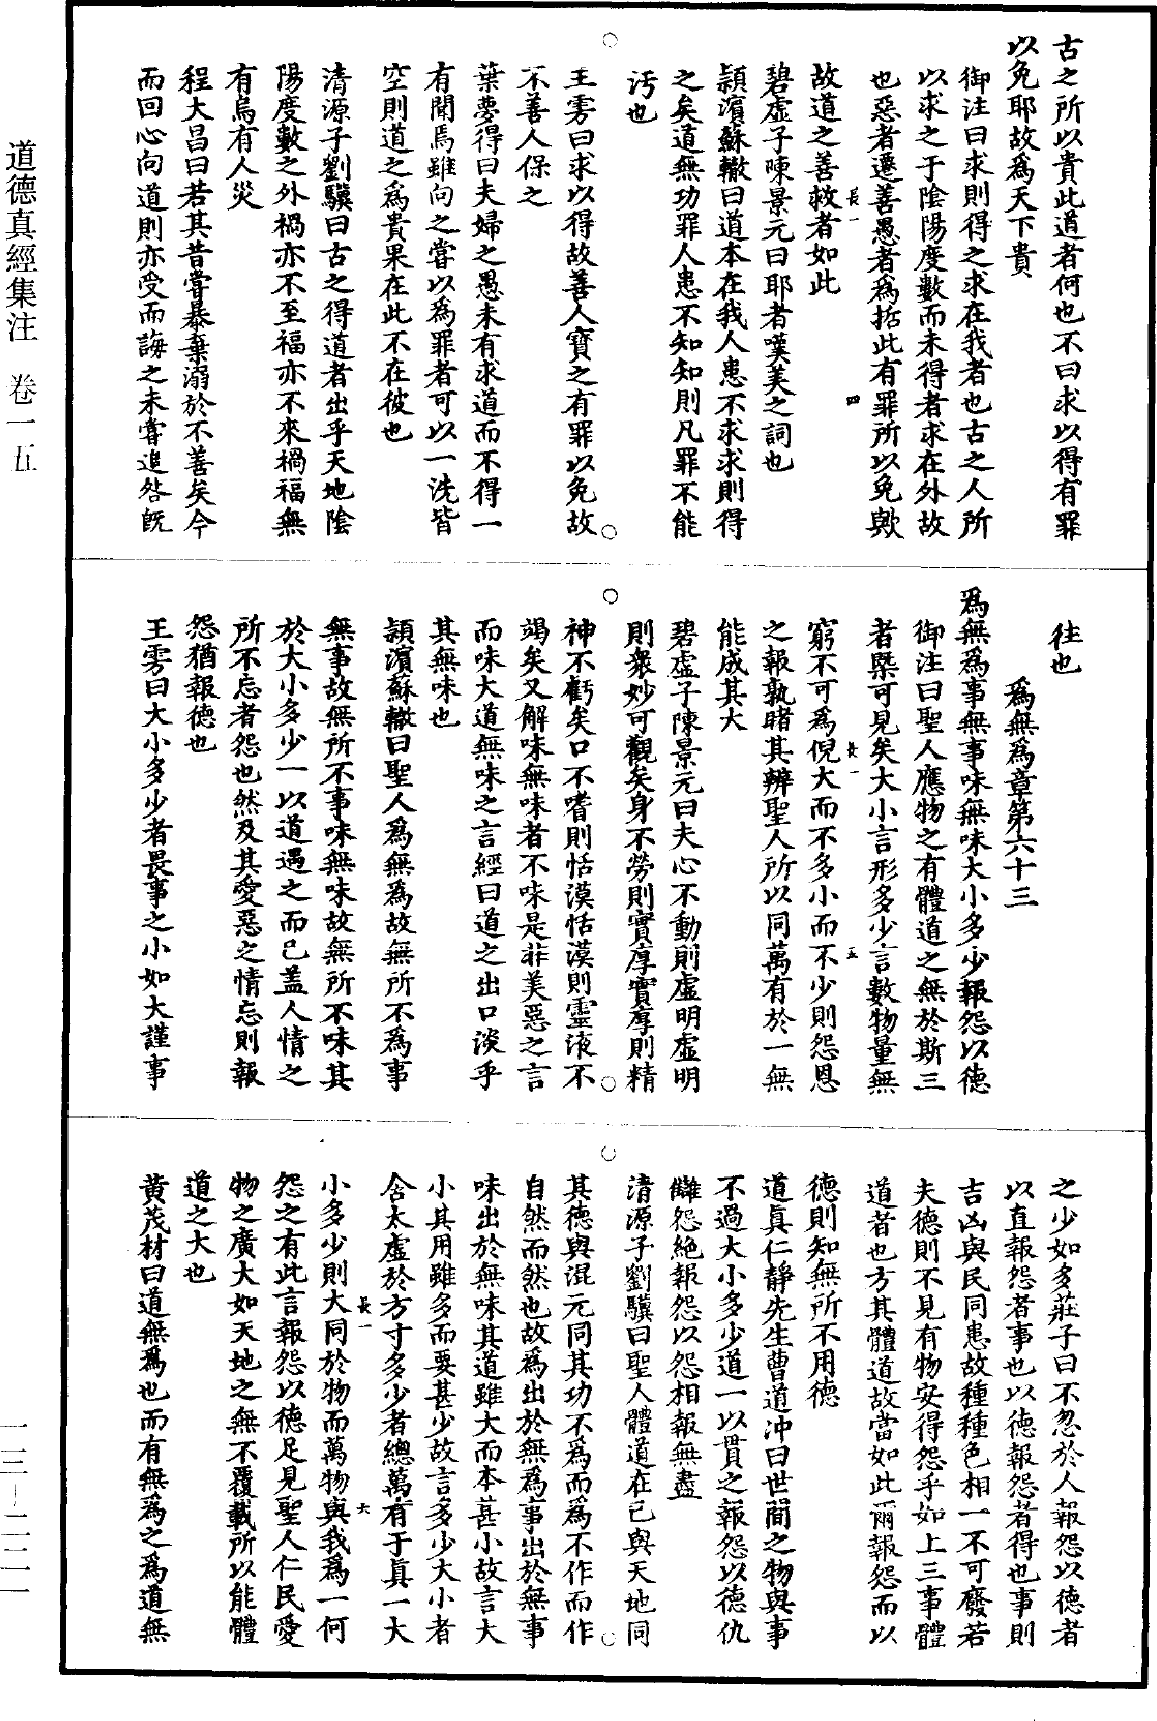 道德真經集注　卷一五
古之所以貴此道者何也不曰求以得有罪
以免耶故爲天下貴
御注曰求則得之求在我者也古之人所
以求之于陰陽度數而未得者求在外故
也惡者遷善愚者爲哲此有罪所以免歟
故道之善救者如此
長一
四
碧虛子陳景元曰耶者嘆美之詞也
頴濱蘇轍曰道本在我人患不求求則得
之矣道無功罪人患不知知則凡罪不能
汚也
王雱曰求以得故善人寶之有罪以免故
不善人保之
葉夢得曰夫婦之愚未有求道而不得一
有聞焉雖向之嘗以爲罪者可以一洗皆
空則道之爲貴果在此不在彼也
清源子劉驥曰古之得道者出乎天地陰
陽度數之外禍亦不至福亦不來禍福無
有烏有人災
程大昌曰若其昔嘗暴棄溺於不善矣今
而回心向道則亦受而誨之未嘗追咎既
往也
爲無爲章第六十三
爲無爲事無事味無味大小多少報怨以德
御注曰聖人應物之有體道之無於斯三
者槩可見矣大小言形多少言數物量無
窮不可爲倪大而不多小而不少則怨恩
長一
五
之報孰睹其辨聖人所以同萬有於一無
能成其大
碧虛子陳景元曰夫心不動則虛明虛明
則衆妙可觀矣身不勞則實厚實厚則精
神不虧矣口不嗜則恬漠恬漠則靈液不
竭矣又解味無味者不味是非美惡之言
而味大道無味之言經曰道之出口淡乎
其無味也
頴濱蘇轍曰聖人爲無爲故無所不爲事
無事故無所不事味無味故無所不味其
於大小多少一以道遇之而已盖人情之
所不忘者怨也然及其愛惡之情忘則報
怨猶報德也
王雱曰大小多少者畏事之小如大謹事
之少如多莊子曰不忽於人報怨以德者
以直報怨者事也以德報怨者得也事則
吉凶與民同患故種種色相一不可廢若
夫德則不見有物安得怨乎如上三事體
道者也方其體道故當如此爾報怨而以
德則知無所不用德
道眞仁靜先生曹道冲曰世間之物與事
不過大小多少道一以貫之報怨以德仇
讎怨絶報怨以怨相報無盡
清源子劉驥曰聖人體道在已與天地同
其德與混元同其功不爲而爲不作而作
自然而然也故爲出於無爲事出於無事
味出於無味其道雖大而本甚小故言大
小其用雖多而要甚少故言多少大小者
含太虛於方寸多少者總萬有于眞一大
小多少則大同於物而萬物與我爲一何
長一
六
怨之有此言報怨以德足見聖人仁民愛
物之廣大如天地之無不覆載所以能體
道之大也
黄茂材曰道無爲也而有無爲之爲道無
一三—二二一